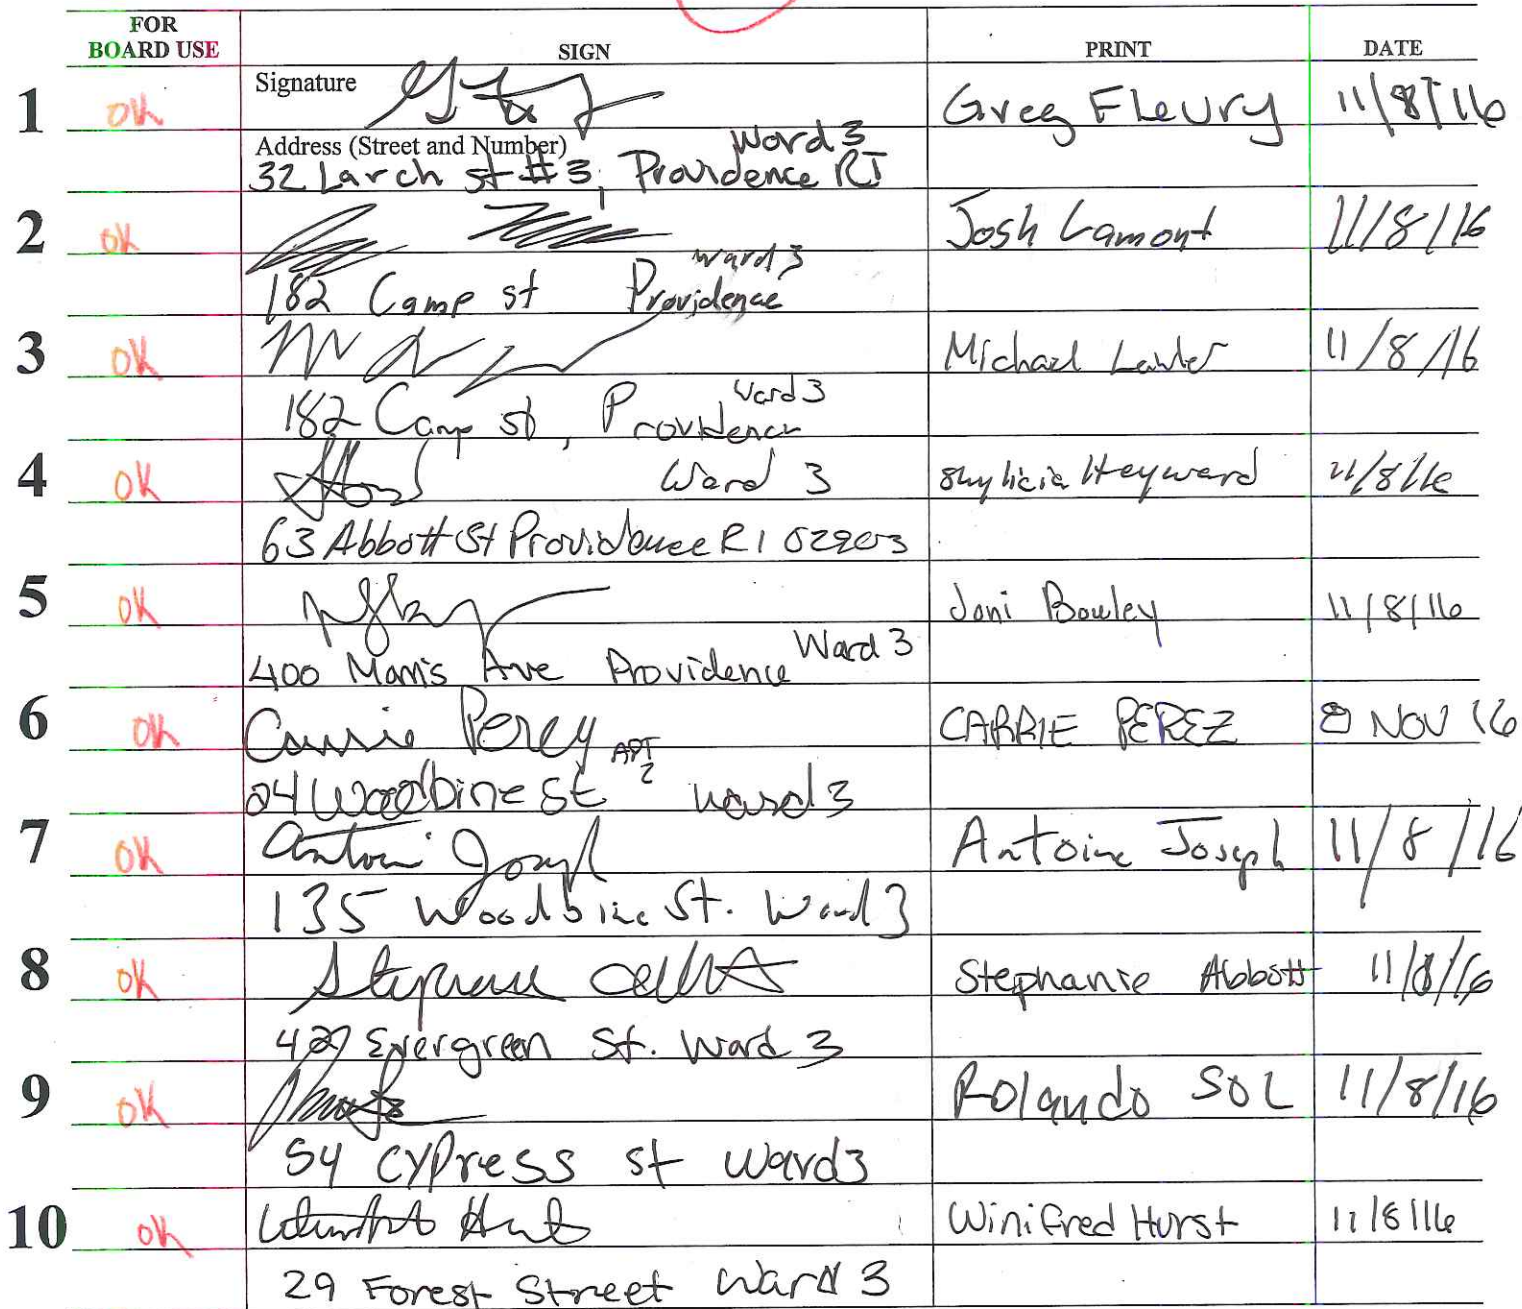 FOR BOARD USE SIGN PRINT DATE
1 OK Signature Greg Fleury 11/8/16
Address (Street and Number) Ward 3
32 Larch St #3, Providence RI
2 OK Josh Lamont 11/8/16
Ward 3
182 Camp St Providence
3 OK Michael 11/8/16
Ward 3
182 Camp St, Providence
4 OK Ward 3 Shylicia Heyward 11/8/16
63 Abbott St Providence RI 02903
5 OK Joni Bowley 11/8/16
Ward 3
400 Morris Ave Providence
6 OK Carrie Perez CARRIE PEREZ 8 NOV 16
APT 2
24 Woodbine St Ward 3
7 OK Antoine Joseph Antoine Joseph 11/8/16
135 Woodbine St. Ward 3
8 OK Stephanie Abbott Stephanie Abbott 11/8/16
Evergreen St. Ward 3
9 OK Rolando SOL 11/8/16
54 Cypress St Ward 3
10 OK Winifred Hurst Winifred Hurst 11/8/16
29 Forest Street Ward 3